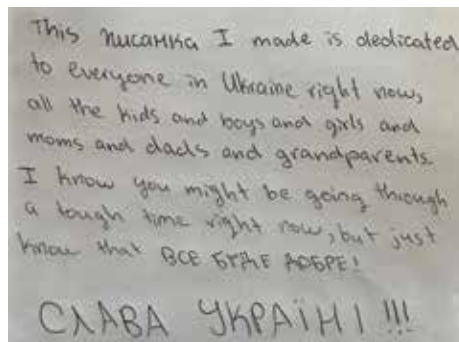 This писанка I made is dedicated
to everyone in Ukraine right now,
all the kids and boys and girls and
moms and dads and grandparents.
I know you might be going through
a tough time right now, but just
know that ВСЕ БУДЕ ДОБРЕ!
СЛАВА УКРАЇНІ!!!